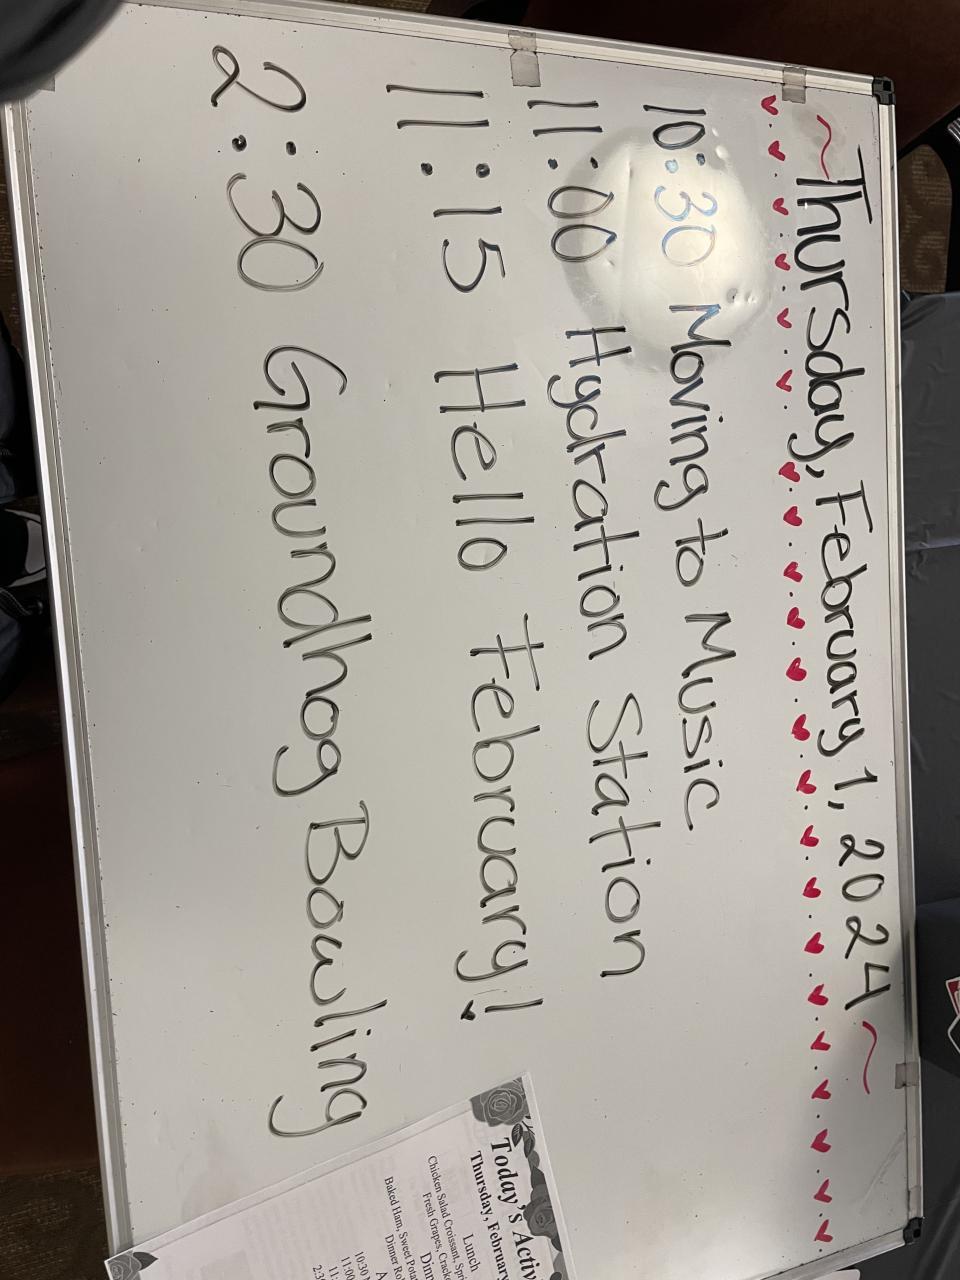 ~Thursday, February 1, 2024~
10:30 Moving to Music
11:00 Hydration Station
11:15 Hello February!
2:30 Groundhog Bowling
Today's
Thursday, February
Lunch
Chicken Salad Croissant,
Fresh Grapes,
Baked Ham, Sweet
Dinner
10:30
11:00